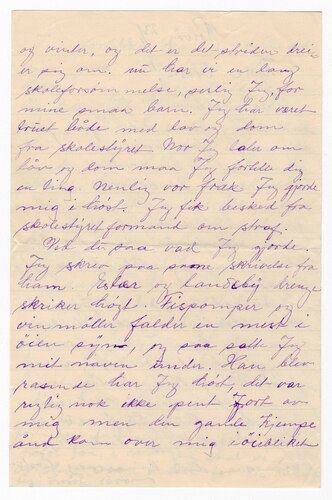 og vinter, og det er det striden drei-
er sig om. nu har vi en lang
skoleforsømmelse, særlig Jeg, for
mine smaa barn. Jeg har været
truet både med lov og dom
fra skolestyret Nor Jeg taler om
lov og dom maa Jeg fortelle dig
en ting Nemlig vor fræk Jeg gjorde
mig i høst. Jeg fik besked fra
skolestyret formand om straf.
du saa vad Jeg gjorde.
Jeg skrev paa same skrivelse fra
ham. Esler og Landsby drenge
skriker høgt. Pispomper og
vin møller falder en mest i
öien syne, og saa satt Jeg
mit navn under. Han blev
rasende har Jeg hört, det var
riglig nok ikke pent Jort av
mig men den gamle Kjempe
ånd kom over mig i öiebliket